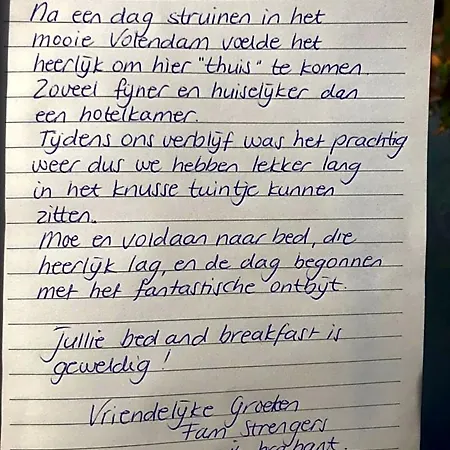 Na een dag struinen in het
mooie Volendam voelde het
heerlijk om hier "thuis" te komen.
Zoveel fijner en huiselijker dan
een hotelkamer.
Tijdens ons verblijf was het prachtig
weer dus we hebben lekker lang
in het knusse tuintje kunnen
zitten.
Moe en voldaan naar bed, die
heerlijk lag, en de dag begonnen
met het fantastische ontbijt.
Jullie bed and breakfast is
geweldig!
Vriendelijke Groeten
Fam Strengers